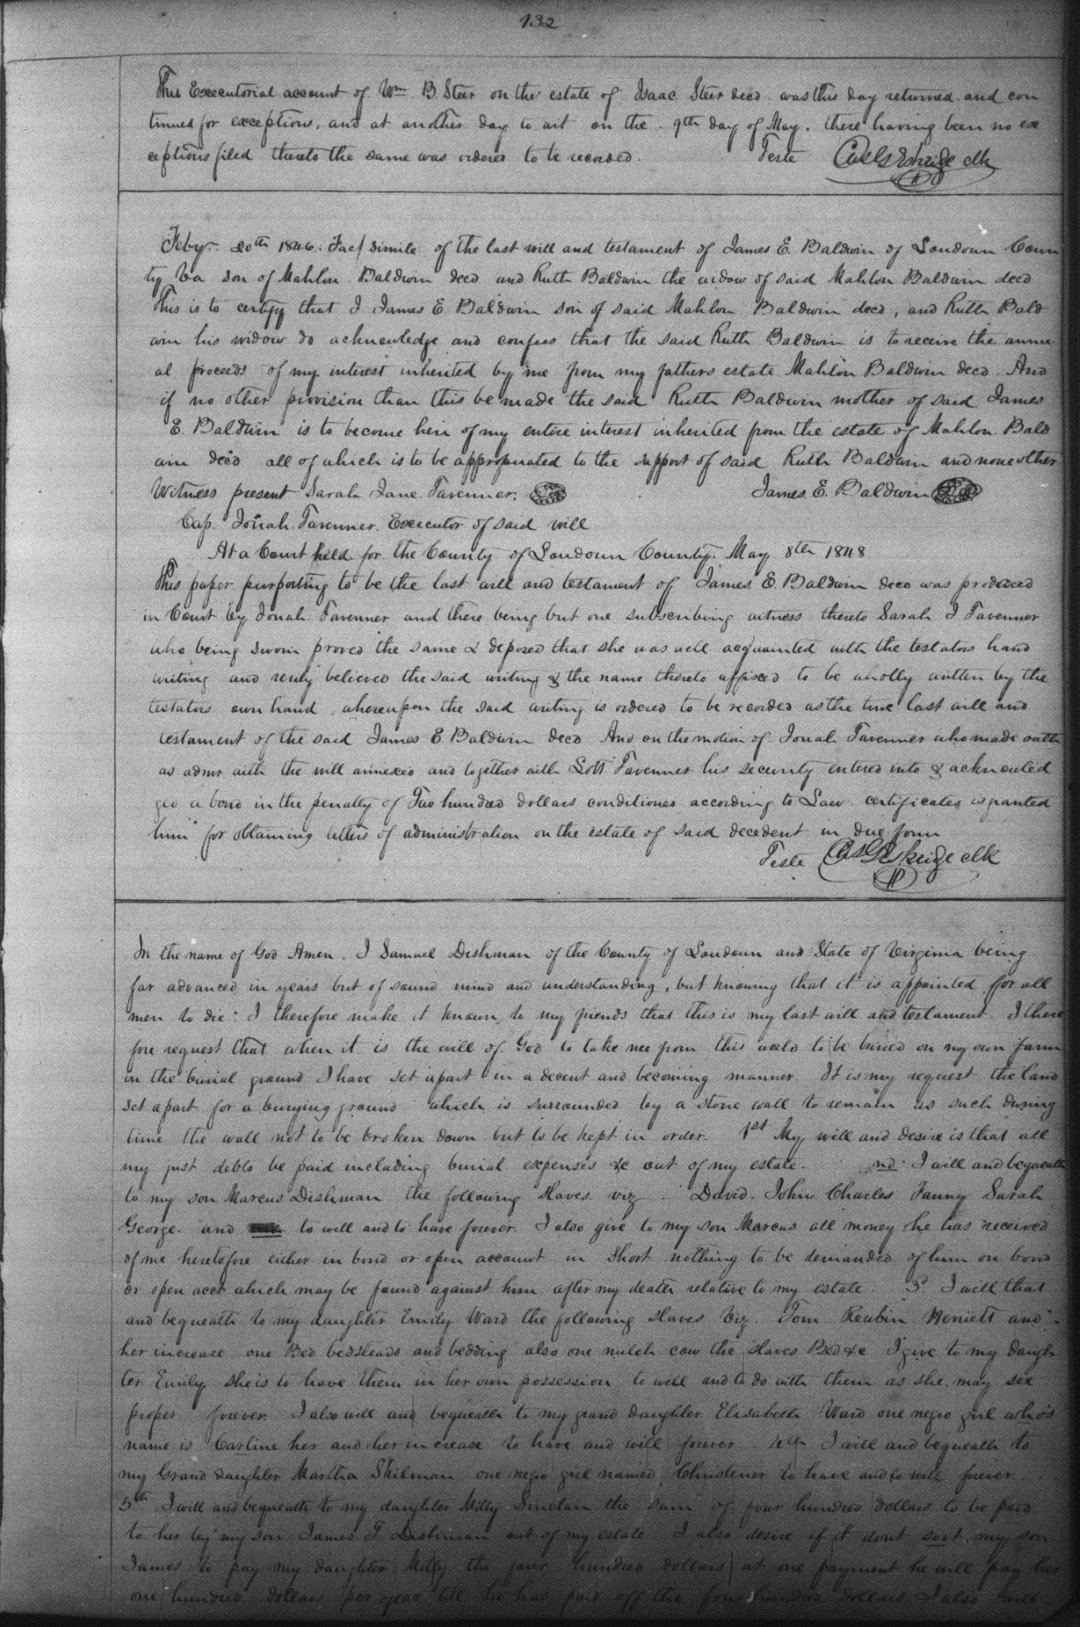 132
This Executorial account of Wm B. Steer on the estate of Isaac Steer decd. was this day returned and con
tinued for exceptions, and at another day to wit on the 9th day of May. there having been no ex
ceptions filed thereto the same was ordered to be recorded. Teste Chas G Eskridge clk
Feby. 20th 1846. Fac simile of the last will and testament of James E. Baldwin of Loudoun Coun
ty Va son of Mahlon Baldwin decd and Ruth Baldwin the widow of said Mahlon Baldwin decd
This is to certify that I James E. Baldwin son of said Mahlon Baldwin decd, and Ruth Bald
win his widow do acknowledge and confess that the said Ruth Baldwin is to receive the annu
al proceeds of my interest inherited by me from my fathers estate Mahlon Baldwin decd. And
if no other provision than this be made the said Ruth Baldwin mother of said James
E. Baldwin is to become heir of my entire interest inherited from the estate of Mahlon Bald
win decd all of which is to be appropriated to the support of said Ruth Baldwin and none other
Witness present Sarah Jane Tavenner. James E. Baldwin
Cap. Jonah Tavenner. Executor of said will
At a Court held for the County of Loudoun County. May 8th 1848
This paper purporting to be the last will and testament of James E. Baldwin decd was produced
in Court by Jonah Tavenner and there being but one subscribing witness thereto Sarah J Tavenner
who being sworn proved the same & deposed that she was well acquainted with the testators hand
writing and verily believed the said writing & the name thereto affixed to be wholly written by the
testators own hand, whereupon the said writing is ordered to be recorded as the true last will and
testament of the said James E. Baldwin decd And on the motion of Jonah Tavenner who made oath
as admr with the will annexed and together with Lott Tavenner his security entered into & acknowled
ged a bond in the penalty of Two hundred dollars conditioned according to Law. certificate is granted
him for obtaining letters of administration on the estate of said decedent in due form
Teste Chas G Eskridge clk
In the name of God Amen. I Samuel Dishman of the County of Loudoun and State of Virginia being
far advanced in years but of sound mind and understanding, but knowing that it is appointed for all
men to die: I therefore make it known to my friends that this is my last will and testament. I there
fore request that when it is the will of God to take me from this world to be buried on my own farm
in the burial ground I have set apart in a decent and becoming manner. It is my request the land
set apart for a burying ground which is surrounded by a stone wall to remain as such during
time the wall not to be broken down but to be kept in order. 1st My will and desire is that all
my just debts be paid including burial expenses &c out of my estate. nd. I will and bequeath
to my son Marcus Dishman the following slaves viz. David. John Charles Fanny Sarah
George. and to will and to have forever. I also give to my son Marcus all money he has received
of me heretofore either in bond or open account in short nothing to be demanded of him on bond
or open acct which may be found against him after my death relative to my estate. 3d I will that
and bequeath to my daughter Emily Ward the following slaves viz. Tom Reubin Henriett and
her increase one Bed bedsteads and bedding also one milch cow the slaves Bed &c I give to my daugh
ter Emily she is to have them in her own possession to will and to do with them as she may see
proper forever. I also will and bequeath to my grand daughter Elisabeth Ward one negro girl who's
name is Carline her and her increase to have and will forever. 4th I will and bequeath to
my Grand daughter Martha Skilman one negro girl named Christener to have and to will forever.
5th I will and bequeath to my daughter Milly Sinclair the sum of four hundred dollars to be paid
to her by my son James F. Dishman out of my estate. I also desire if it dont sort my son
James to pay my daughter Milly the four hundred dollars at one payment he will pay her
one hundred dollars per year till he has paid off the four hundred dollars I also will